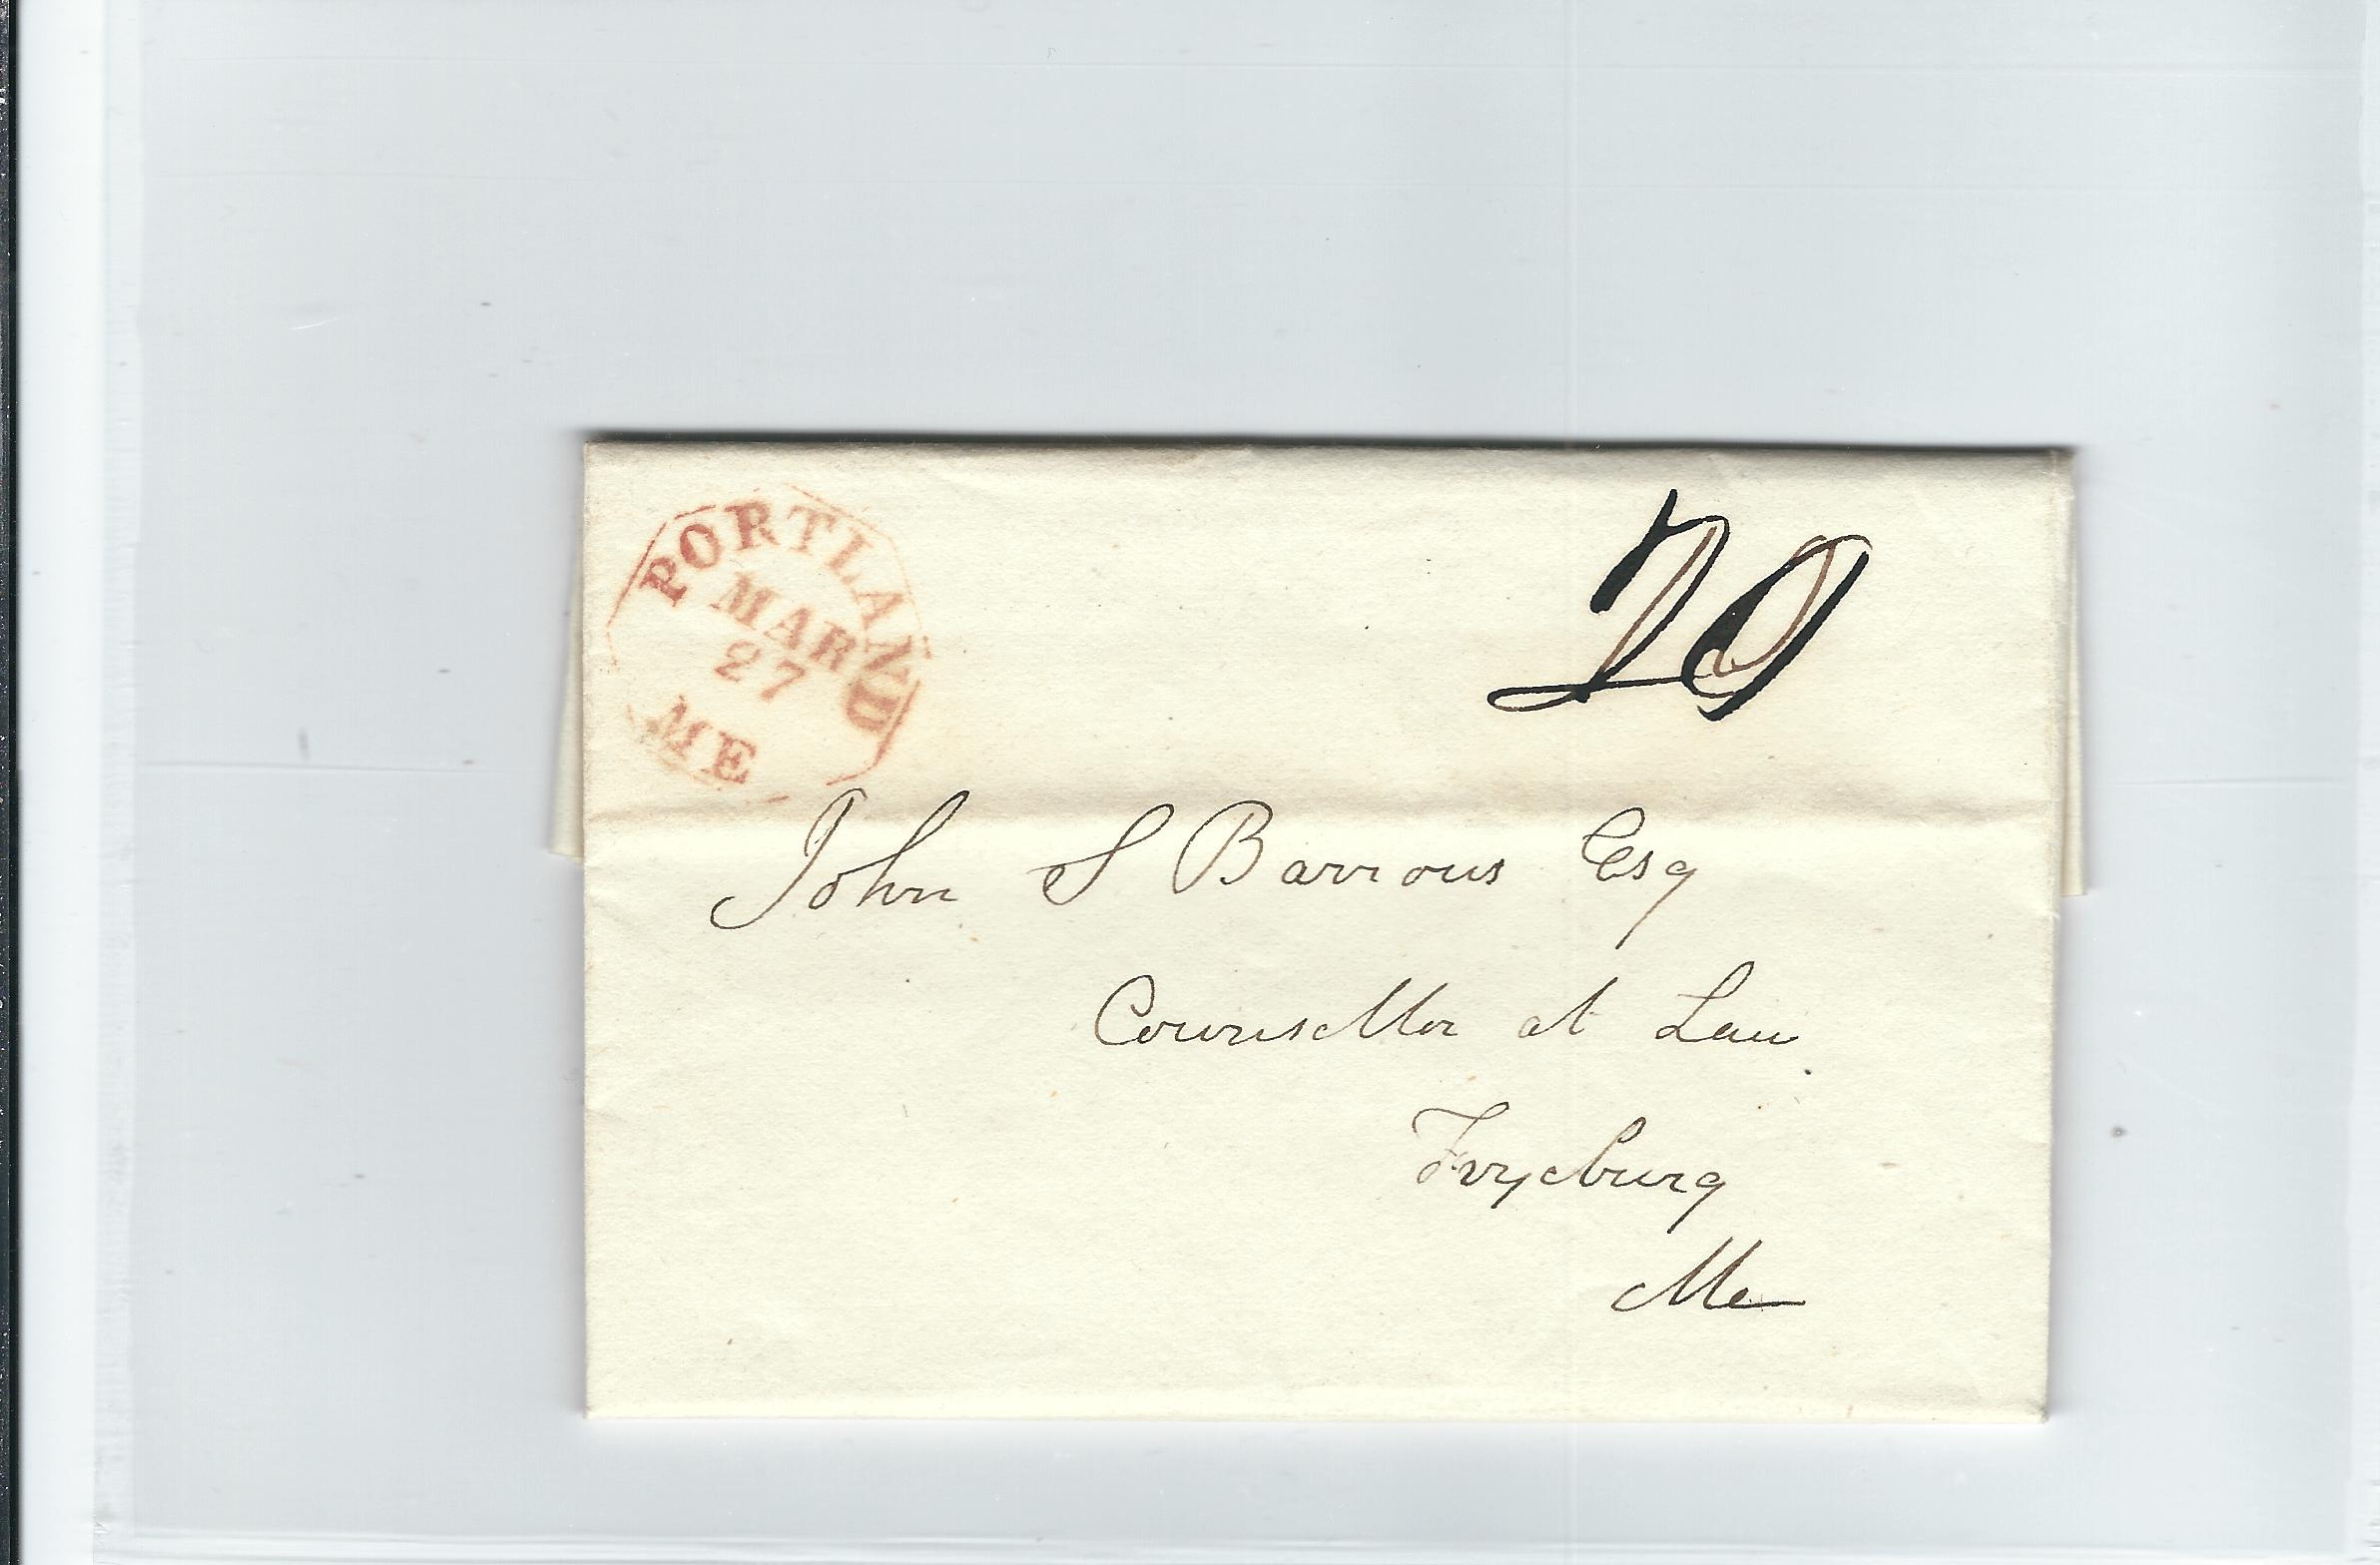 PORTLAND
MAR
27
ME
20
John S Barrows Esq
Counsellor at Law
Fryeburg
Me